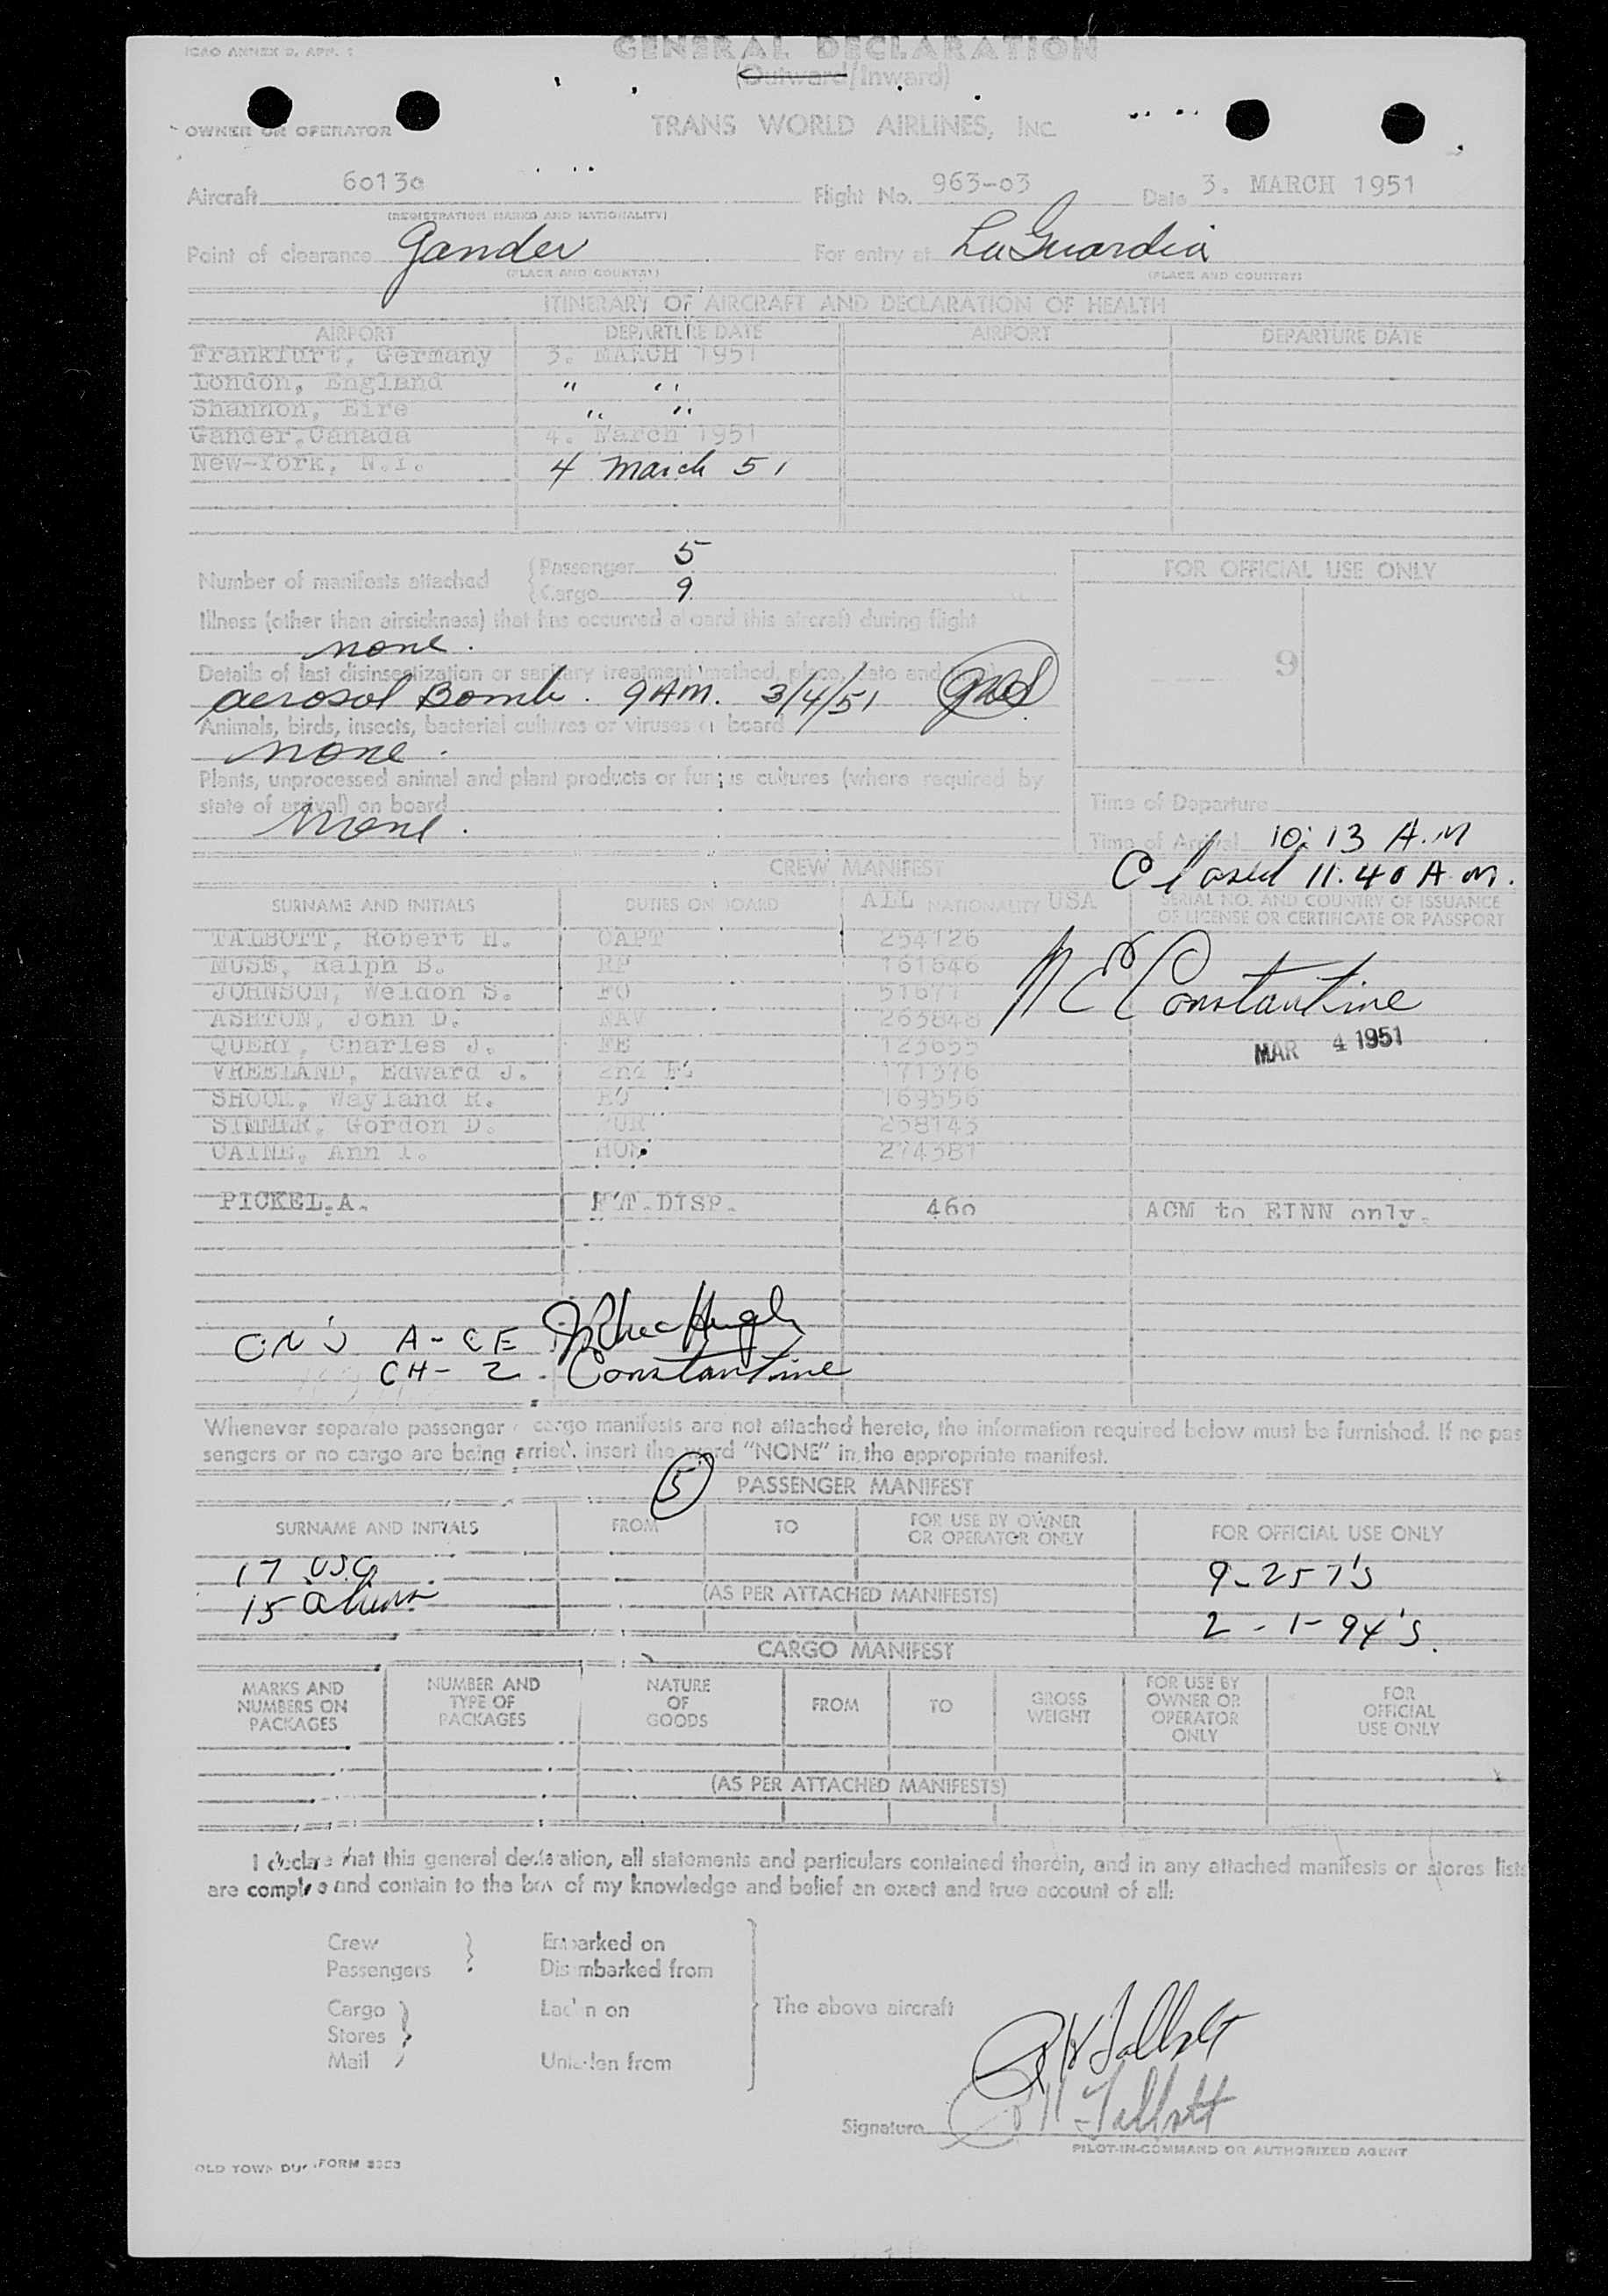 ICAO ANNEX 9, APP. 1
GENERAL DECLARATION
(Outward/Inward)
OWNER OR OPERATOR TRANS WORLD AIRLINES, INC.
Aircraft 6013c Flight No. 963-03 Date 3. MARCH 1951
(REGISTRATION MARKS AND NATIONALITY)
Point of clearance Gander For entry at LaGuardia
(PLACE AND COUNTRY) (PLACE AND COUNTRY)
ITINERARY OF AIRCRAFT AND DECLARATION OF HEALTH
AIRPORT DEPARTURE DATE AIRPORT DEPARTURE DATE
Frankfurt, Germany 3. MARCH 1951
London, England " "
Shannon, Eire " "
Gander, Canada 4. March 1951
New-York, N.Y. 4 March 51
Number of manifests attached
Passenger 5
Cargo 9
FOR OFFICIAL USE ONLY
9
Illness (other than airsickness) that has occurred aboard this aircraft during flight
none.
Details of last disinsectization or sanitary treatment (method, place, date and
aerosol Bomb. 9AM. 3/4/51
Animals, birds, insects, bacterial cultures or viruses on board
none.
Plants, unprocessed animal and plant products or fungus cultures (where required by
state of arrival) on board
None.
Time of Departure
Time of Arrival 10:13 A.M
Closed 11.40 A.M.
CREW MANIFEST
SURNAME AND INITIALS DUTIES ON BOARD ALL NATIONALITY USA SERIAL NO. AND COUNTRY OF ISSUANCE
OF LICENSE OR CERTIFICATE OR PASSPORT
TALBOTT, Robert H. CAPT 254126
MUSE, Ralph B. RP 161646
JOHNSON, Weldon S. FO 51677
ASHTON, John D. NAV 263848
QUERY, Charles J. FE 123655
VREELAND, Edward J. 2nd FE 171376
SHOOK, Wayland R. RO 169556
SIMMER, Gordon D. PUR 258143
CAINE, Ann T. HOS 274381
N E Constantine
MAR 4 1951
PICKEL.A. FT.DISP. 460 ACM to EINN only.
CH- 2. Constantine
Whenever separate passenger or cargo manifests are not attached hereto, the information required below must be furnished. If no pas
sengers or no cargo are being carried, insert the word "NONE" in the appropriate manifest.
5
PASSENGER MANIFEST
SURNAME AND INITIALS FROM TO FOR USE BY OWNER
OR OPERATOR ONLY FOR OFFICIAL USE ONLY
17 USC 9-257's
15 aliens (AS PER ATTACHED MANIFESTS)
2 - I-94's.
CARGO MANIFEST
MARKS AND
NUMBERS ON
PACKAGES
NUMBER AND
TYPE OF
PACKAGES
NATURE
OF
GOODS
FROM
TO
GROSS
WEIGHT
FOR USE BY
OWNER OR
OPERATOR
ONLY
FOR
OFFICIAL
USE ONLY
(AS PER ATTACHED MANIFESTS)
I declare that this general declaration, all statements and particulars contained therein, and in any attached manifests or stores lists
are complete and contain to the best of my knowledge and belief an exact and true account of all:
Crew
Passengers
Embarked on
Disembarked from
Cargo
Stores
Mail
Laden on
Unladen from
The above aircraft
R H Talbott
Signature R H Talbott
PILOT-IN-COMMAND OR AUTHORIZED AGENT